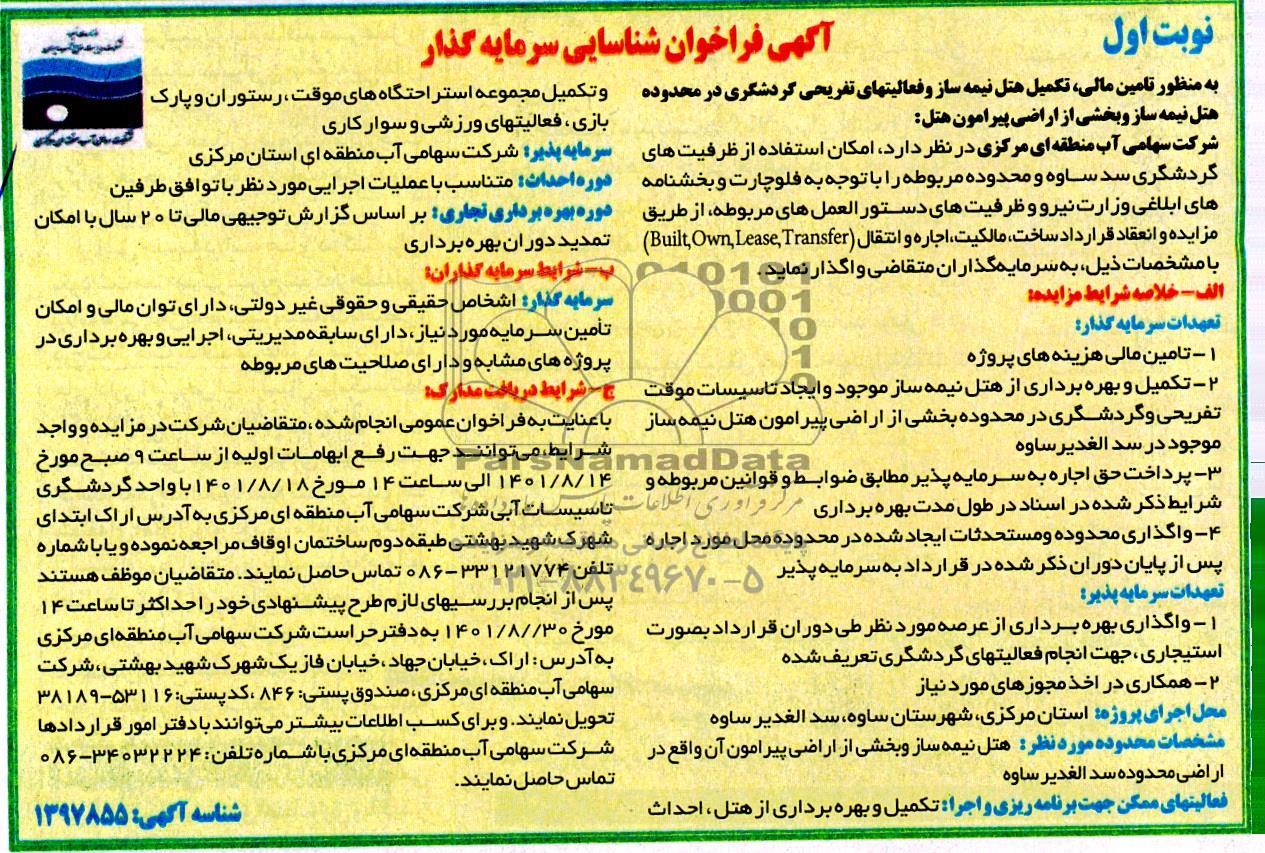 نوبت اول
آگهی فراخوان شناسایی سرمایه گذار
به منظور تامین مالی، تکمیل هتل نیمه ساز و فعالیتهای تفریحی گردشگری در محدوده
هتل نیمه ساز وبخشی از اراضی پیرامون هتل:
شرکت سهامی آب منطقه ای مرکزی در نظر دارد، امکان استفاده از ظرفیت های
گردشگری سد ساوه و محدوده مربوطه را با توجه به فلوچارت و بخشنامه
های ابلاغی وزارت نیرو و ظرفیت های دستور العمل های مربوطه، از طریق
مزایده و انعقاد قرارداد ساخت، مالکیت، اجاره و انتقال (Built,Own,Lease,Transfer)
با مشخصات ذیل، به سرمایه‌گذاران متقاضی واگذار نماید.
الف- خلاصه شرایط مزایده:
تعهدات سرمایه گذار:
۱- تامین مالی هزینه های پروژه
۲- تکمیل و بهره برداری از هتل نیمه ساز موجود و ایجاد تاسیسات موقت
تفریحی وگردشگری در محدوده بخشی از اراضی پیرامون هتل نیمه ساز
موجود در سد الغدیر ساوه
۳- پرداخت حق اجاره به سرمایه پذیر مطابق ضوابط و قوانین مربوطه و
شرایط ذکر شده در اسناد در طول مدت بهره برداری
۴- واگذاری محدوده ومستحدثات ایجاد شده در محدوده محل مورد اجاره
پس از پایان دوران ذکر شده در قرارداد به سرمایه پذیر
تعهدات سرمایه پذیر:
۱- واگذاری بهره برداری از عرصه مورد نظر طی دوران قرارداد بصورت
استیجاری، جهت انجام فعالیتهای گردشگری تعریف شده
۲- همکاری در اخذ مجوزهای مورد نیاز
محل اجرای پروژه: استان مرکزی، شهرستان ساوه، سد الغدیر ساوه
مشخصات محدوده مورد نظر: هتل نیمه ساز وبخشی از اراضی پیرامون آن واقع در
اراضی محدوده سد الغدیر ساوه
فعالیتهای ممکن جهت برنامه ریزی و اجرا: تکمیل و بهره برداری از هتل، احداث
و تکمیل مجموعه استراحتگاه های موقت، رستوران و پارک
بازی، فعالیتهای ورزشی و سوار کاری
سرمایه پذیر: شرکت سهامی آب منطقه ای استان مرکزی
دوره احداث: متناسب با عملیات اجرایی مورد نظر با توافق طرفین
دوره بهره برداری تجاری: بر اساس گزارش توجیهی مالی تا ۲۰ سال با امکان
تمدید دوران بهره برداری
ب- شرایط سرمایه گذاران:
سرمایه گذار: اشخاص حقیقی و حقوقی غیر دولتی، دارای توان مالی و امکان
تأمین سرمایه مورد نیاز، دارای سابقه مدیریتی، اجرایی و بهره برداری در
پروژه های مشابه و دارای صلاحیت های مربوطه
ج- شرایط دریافت مدارک:
با عنایت به فراخوان عمومی انجام شده، متقاضیان شرکت در مزایده و واجد
شرایط، می‌توانند جهت رفع ابهامات اولیه از ساعت ۹ صبح مورخ
۱۴۰۱/۸/۱۴ الی ساعت ۱۴ مورخ ۱۴۰۱/۸/۱۸ با واحد گردشگری
تاسیسات آبی شرکت سهامی آب منطقه ای مرکزی به آدرس اراک ابتدای
شهرک شهید بهشتی طبقه دوم ساختمان اوقاف مراجعه نموده و یا با شماره
تلفن ۳۳۱۲۱۷۷۴-۰۸۶ تماس حاصل نمایند. متقاضیان موظف هستند
پس از انجام بررسیهای لازم طرح پیشنهادی خود را حداکثر تا ساعت ۱۴
مورخ ۱۴۰۱/۸//۳۰ به دفتر حراست شرکت سهامی آب منطقه‌ای مرکزی
به آدرس: اراک، خیابان جهاد، خیابان فاز یک شهرک شهید بهشتی، شرکت
سهامی آب منطقه ای مرکزی، صندوق پستی: ۸۴۶، کدپستی: ۵۳۱۱۶-۳۸۱۸۹
تحویل نمایند. و برای کسب اطلاعات بیشتر می‌توانند با دفتر امور قراردادها
شرکت سهامی آب منطقه‌ای مرکزی با شماره تلفن: ۳۴۰۳۲۲۲۴-۰۸۶
تماس حاصل نمایند.
شناسه آگهی: ۱۳۹۷۸۵۵
ParsNamadData
۰۲۱-۸۸۳۴۹۶۷۰-۵